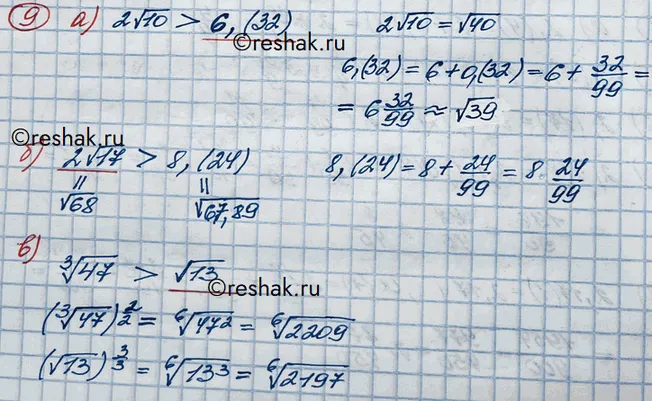 9 а) 2√10 > 6,(32) 2√10 = √40
©reshak.ru
6,(32) = 6 + 0,(32) = 6 + 32/99 =
= 6 32/99 ≈ √39
©reshak.ru
б) 2√17 > 8,(24) 8,(24) = 8 + 24/99 = 8 24/99
= =
√68 √67,89
в)
∛47 > √13
©reshak.ru
(∛47)^(2/2) = ⁶√47² = ⁶√2209
(√13)^(3/3) = ⁶√13³ = ⁶√2197